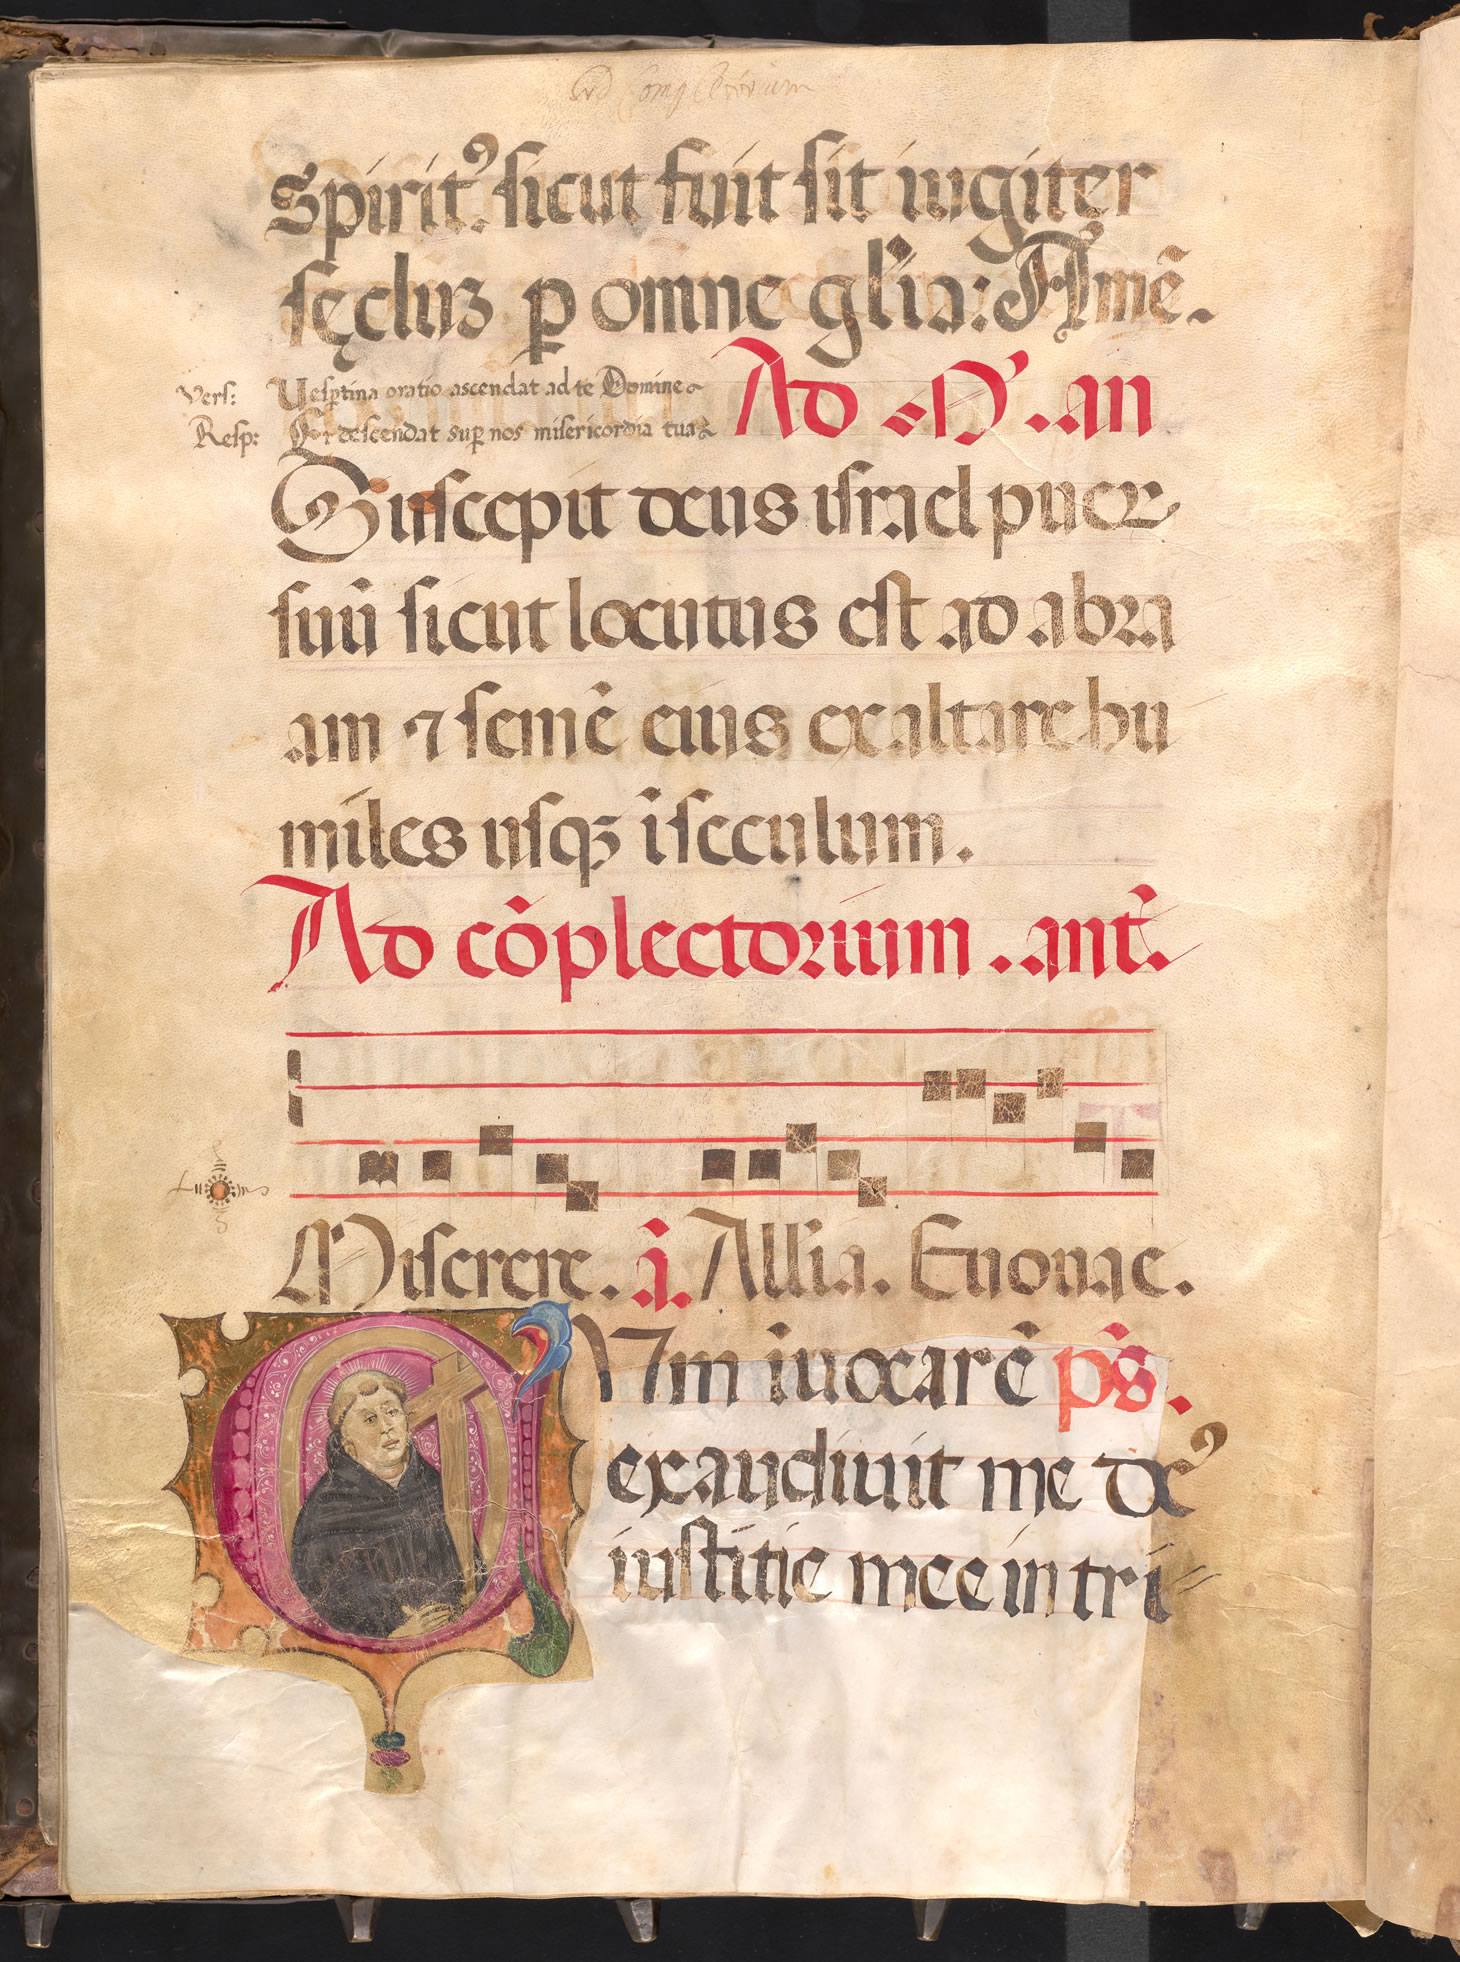 Ad Completorium
Spiritꝰ. sicut fuit sit iugiter
sęcluꝫ ꝑ omne gl'ia: Amē.
Vers: Uesꝑtina oratio ascendat ad te Domine
Resp: Et descendat suꝑ nos misericordia tua
Ad M̃ .an
Suscepit deus israel puer
suū sicut locutus est ad abra
am ⁊ semē eius exaltare hu
miles usqꝫ ī seculum.
Ad cōplectorium .ant̃.
Miserere. a͂. Allīa. Euouae.
Cum iuocarē pš.
exaudiuit me deꝰ
iustitie mee in tri